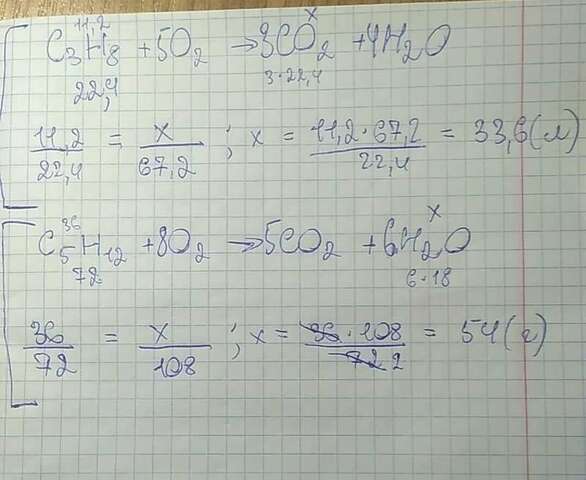 11,2 x
C3H8 + 5O2 → 3CO2 + 4H2O
22,4 3·22,4
11,2/22,4 = x/67,2 ; x = 11,2·67,2/22,4 = 33,6(л)
36 x
C5H12 + 8O2 → 5CO2 + 6H2O
72 6·18
36/72 = x/108 ; x = 36·108/72 2 = 54(г)